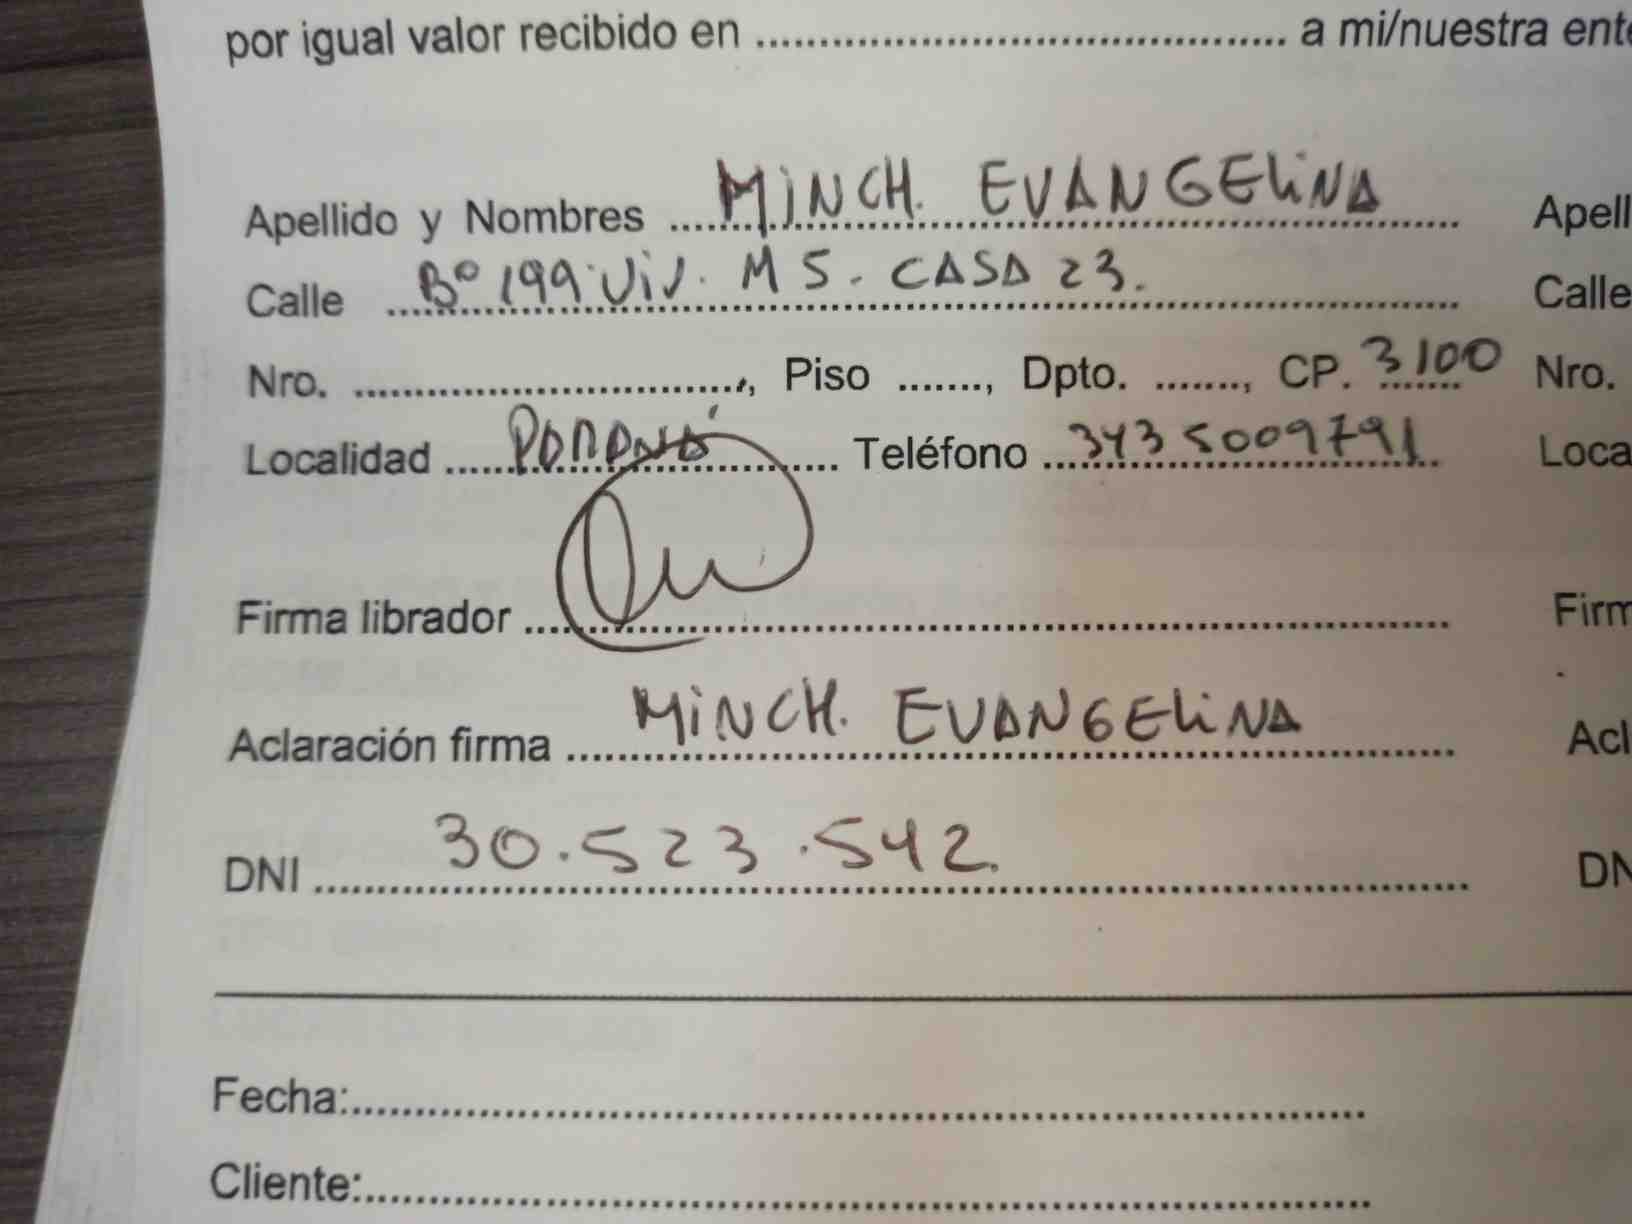 por igual valor recibido en ........................................ a mi/nuestra ent
Apellido y Nombres MINCH. EVANGELINA Apell
Calle Bº 199 VIV. M 5. CASA 23. Calle
Nro. ............................, Piso ......., Dpto. ......., CP. 3100 Nro.
Localidad PARANÁ Teléfono 343 5009791 Loca
Firma librador ........................................ Firm
Aclaración firma MINCH. EVANGELINA Acl
DNI 30.523.542. DN
Fecha:........................................
Cliente:........................................